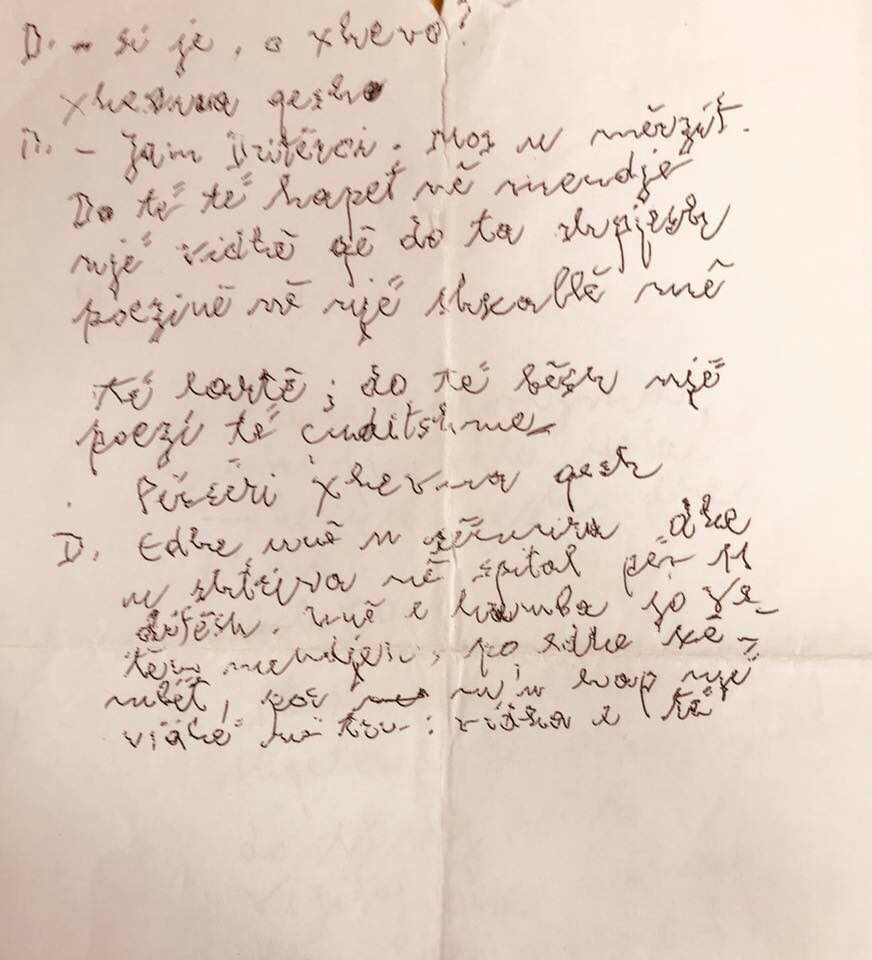 D. - Si je, o Xhevo?
Xhevna qesh
D. - Jam Dritëroi. Mos u mërzit.
Do të të hapet në mendje
një vidhë që do ta shpjesh
poezinë në një shkallë më
të lartë; do të bësh një
poezi të çuditshme
Përsëri Xhevna qesh
D. Edhe unë u sëmura dhe
u shtriva në spital për
difësh. Unë e humba jo ve-
tëm mendjen, po edhe kë-
mbët, por m'u hap një
vidhë në tru: vidha e të